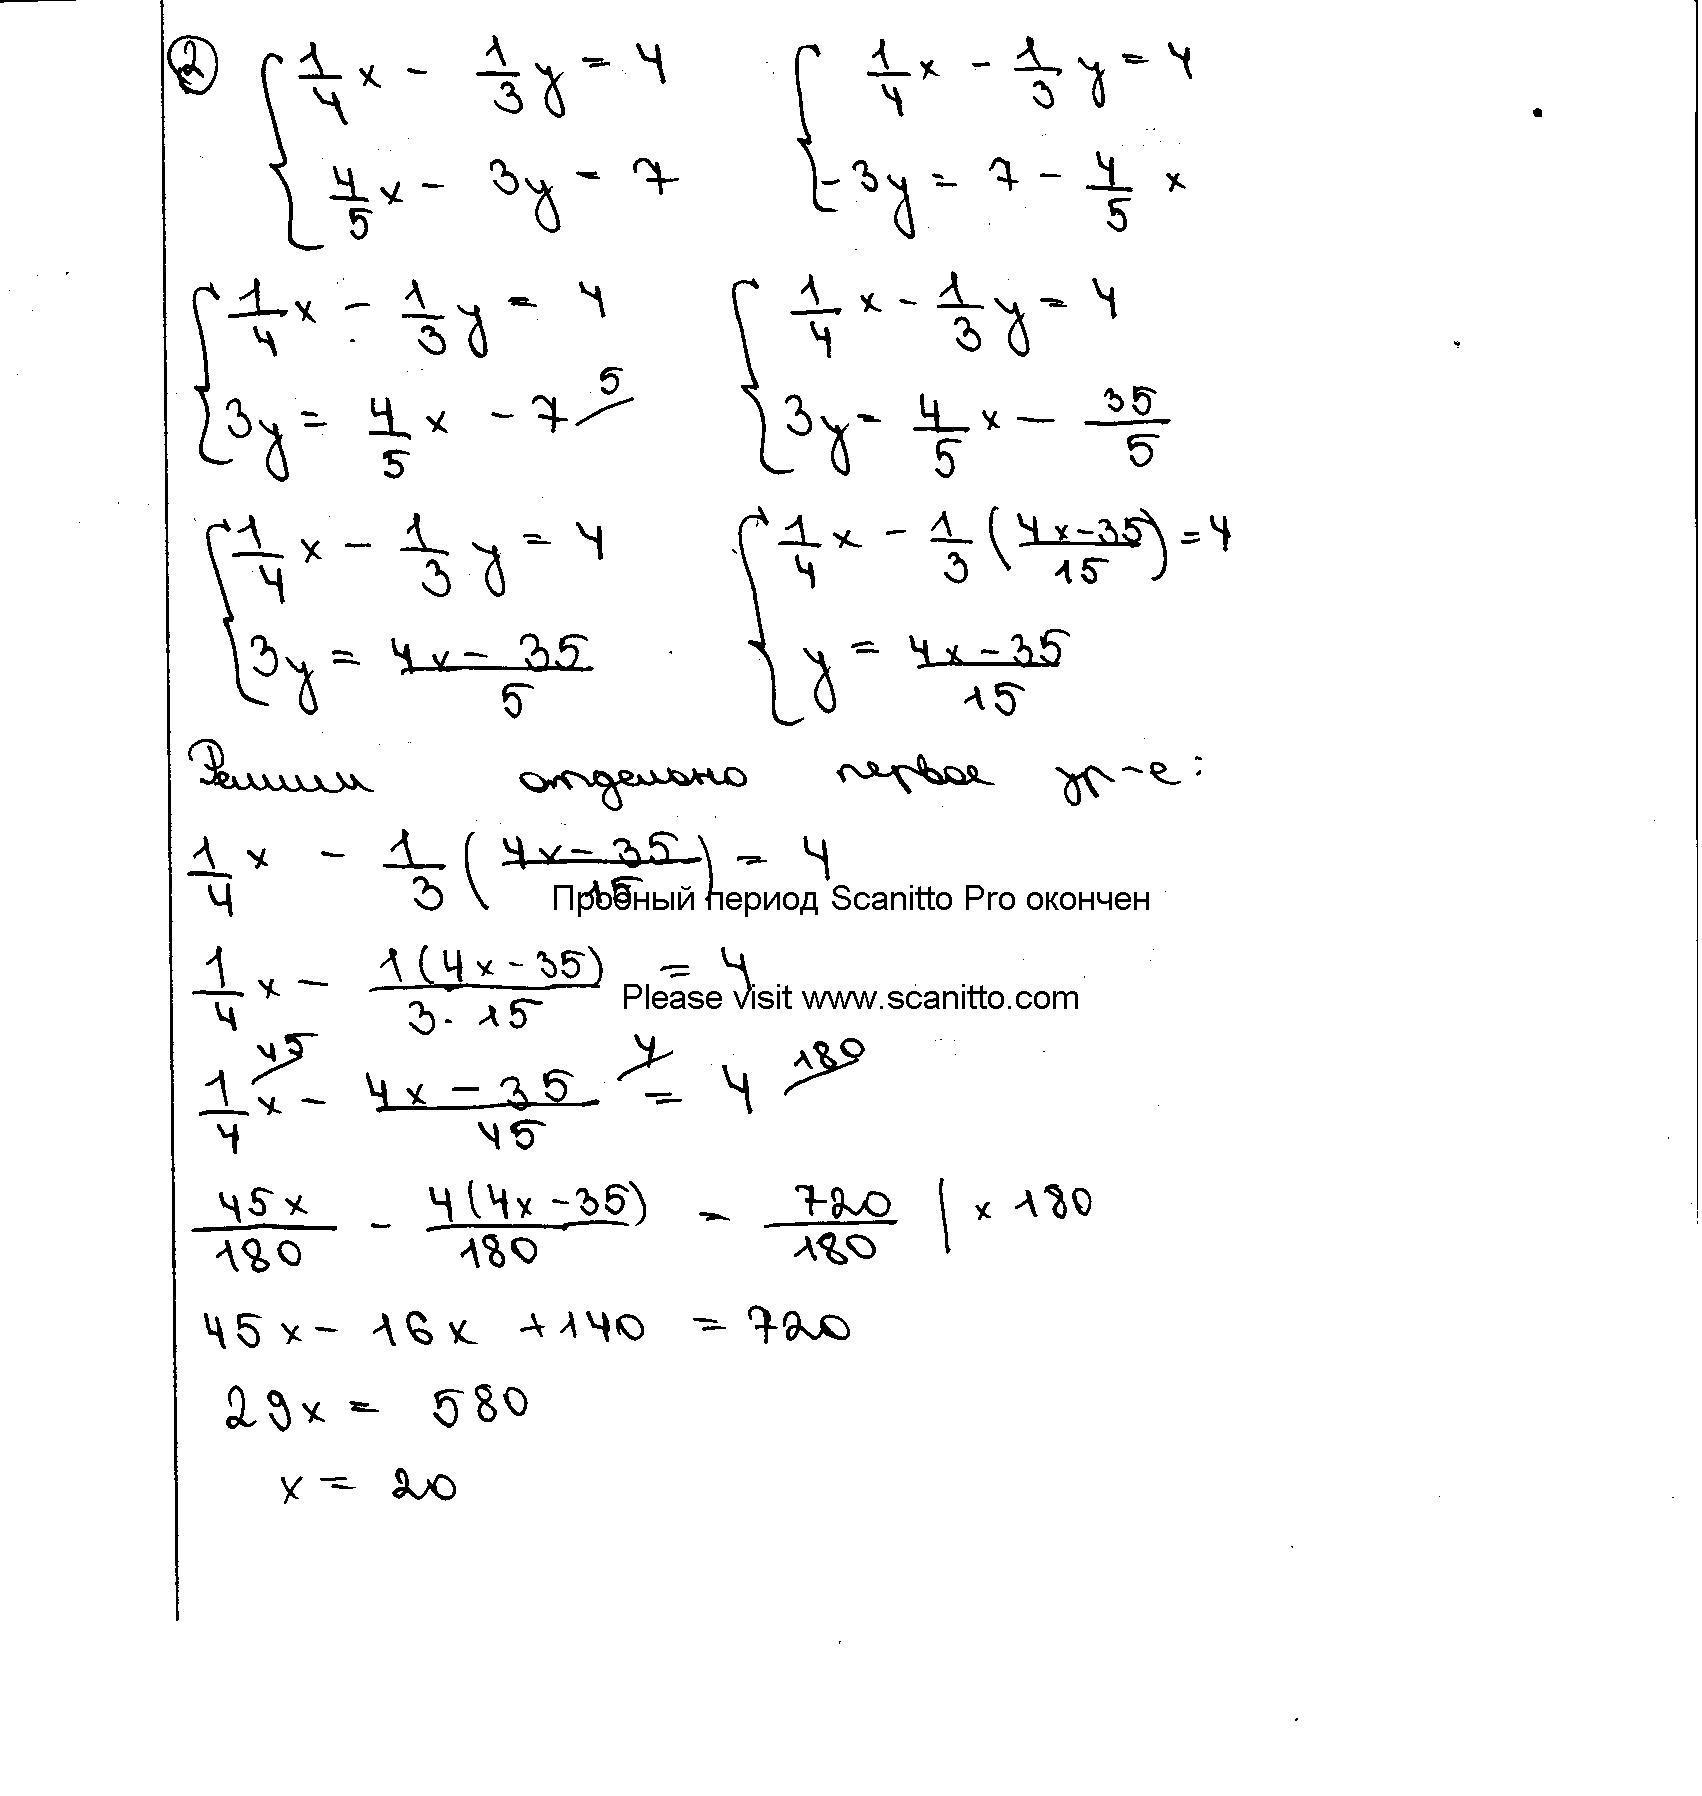 ② { 1/4 x - 1/3 y = 4      { 1/4 x - 1/3 y = 4
{ 4/5 x - 3y = 7      { -3y = 7 - 4/5 x
{ 1/4 x - 1/3 y = 4      { 1/4 x - 1/3 y = 4
{ 3y = 4/5 x - 7 ⁄5      { 3y = 4/5 x - 35/5
{ 1/4 x - 1/3 y = 4      { 1/4 x - 1/3 ( (4x-35)/15 ) = 4
{ 3y = (4x - 35)/5      { y = (4x-35)/15
Решим отдельно первое ур-е:
1/4 x - 1/3 ( (4x-35)/15 ) = 4
Пробный период Scanitto Pro окончен
1/4 x - 1(4x-35)/(3·15) = 4
Please visit www.scanitto.com
1/4 ⁄45 x - (4x - 35)/45 ⁄4 = 4 ⁄180
45x/180 - 4(4x-35)/180 = 720/180 | x 180
45x - 16x + 140 = 720
29x = 580
x = 20